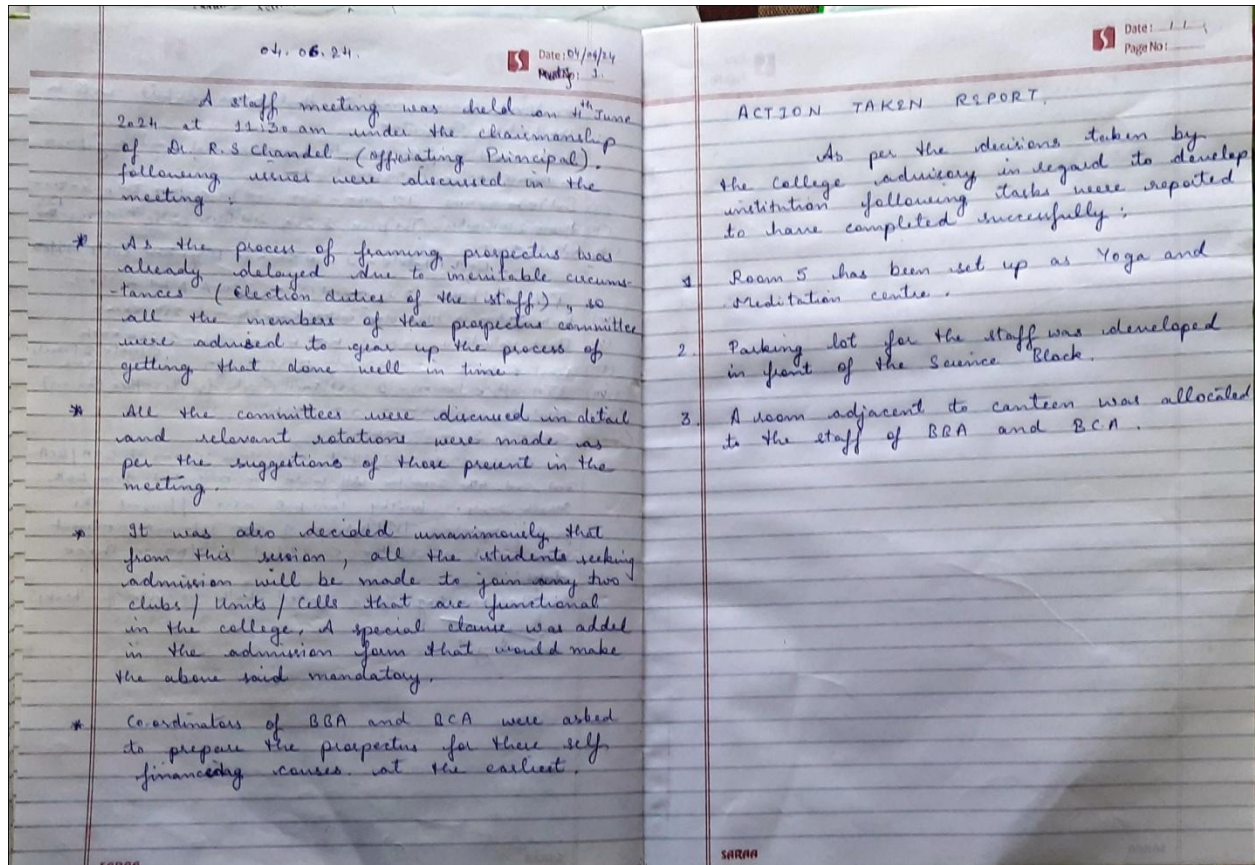 04.06.24.
Date: 04/06/24
: 1.
A staff meeting was held on 4th June
2024 at 11:30 am under the chairmanship
of Dr. R.S Chandel (officiating Principal).
following issues were discussed in the
meeting :
* As the process of framing prospectus was
already delayed due to inevitable circums-
tances (Election duties of the staff), so
all the members of the prospectus committee
were advised to gear up the process of
getting that done well in time.
* All the committees were discussed in detail
and relevant rotations were made as
per the suggestions of those present in the
meeting.
* It was also decided unanimously that
from this session, all the students seeking
admission will be made to join any two
clubs / Units / Cells that are functional
in the college. A special clause was added
in the admission form that would make
the above said mandatory.
* Co-ordinators of BBA and BCA were asked
to prepare the prospectus for there self
financing courses. at the earliest.
SARAA
Date:
Page No:
ACTION TAKEN REPORT.
As per the decisions taken by
the College advisory in regard to develop
institution following tasks were reported
to have completed successfully :
1. Room 5 has been set up as Yoga and
Meditation centre.
2. Parking lot for the staff was developed
in front of the Science Block.
3. A room adjacent to canteen was allocated
to the staff of BBA and BCA.
SARAA